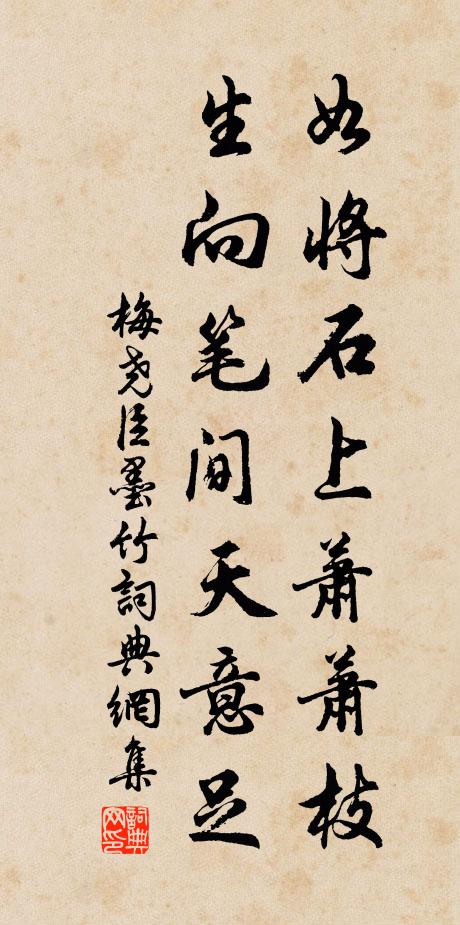 如将石上萧萧枝
生向笔间天意足
梅尧臣墨竹詞典網集
詞典网印